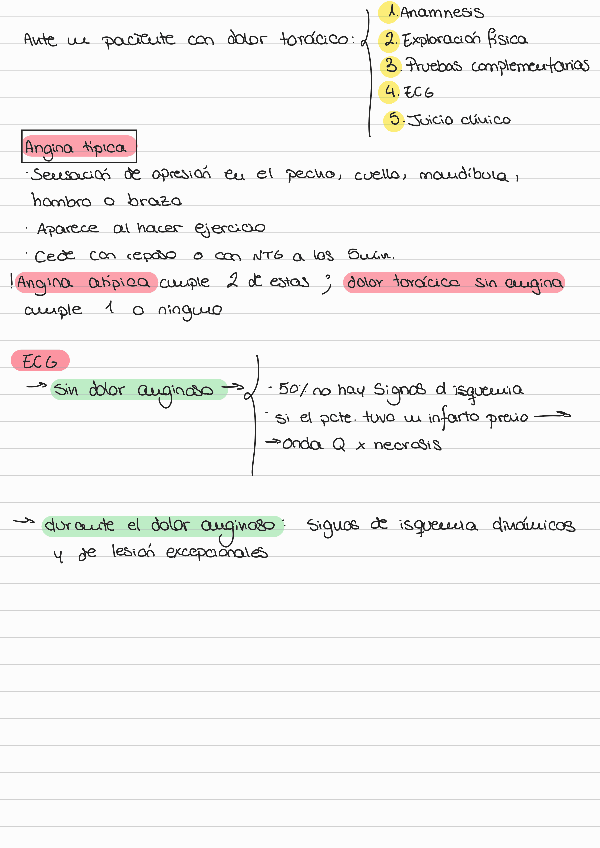 Ante un paciente con dolor torácico:
1. Anamnesis
2. Exploración física
3. Pruebas complementarias
4. ECG
5. Juicio clínico
Angina típica
· Sensación de opresión en el pecho, cuello, mandíbula,
hombro o brazo
· Aparece al hacer ejercicio
· Cede con reposo o con NTG a los 5min.
! Angina atípica cumple 2 de estas ; dolor torácico sin angina
cumple 1 o ninguno
ECG
→ sin dolor anginoso →
· 50% no hay signos d isquemia
· si el pcte. tuvo un infarto previo →
→ onda Q x necrosis
→ durante el dolor anginoso: signos de isquemia dinámicos
y de lesión excepcionales